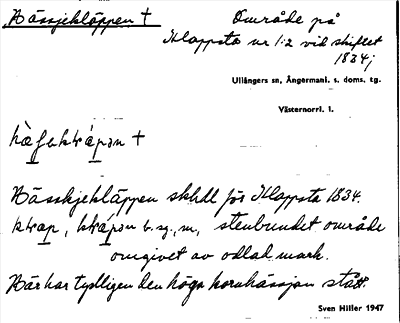 Hässjekläppen †
Område på
Klappsta nr 1:2 vid skiftet
1834;
Ullångers sn, Ångermanl. s. doms. tg.
Västernorrl. l.
†
Hässjekläppen skhll för Klappsta 1834.
b. sg. m, stenbundet område
omgivet av odlad mark.
Här har tydligen den höga kornhässjan stått.
Sven Hiller 1947